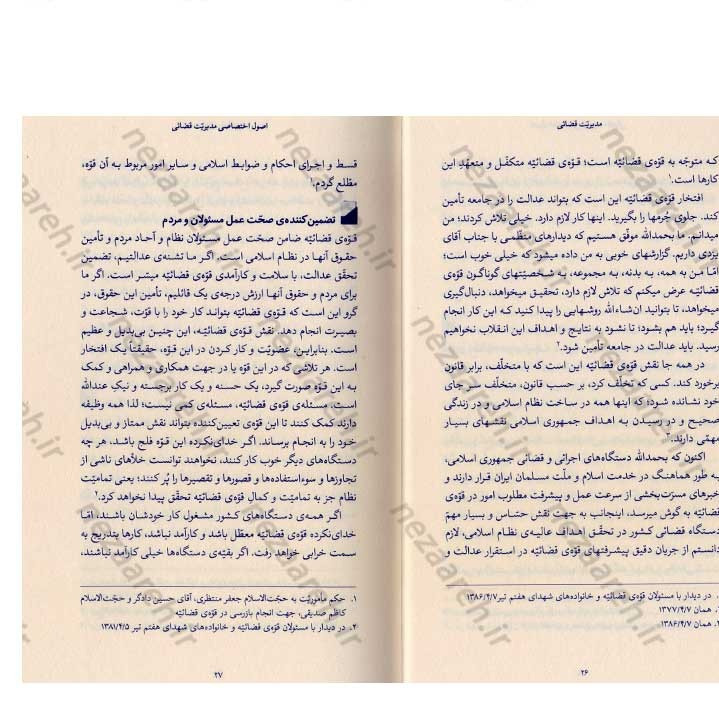 مدیریّت قضائی
که متوجّه به قوّه‌ی قضائیّه است؛ قوّه‌ی قضائیّه متکفّل و متعهّدِ این
کارها است.۱
افتخار قوّه‌ی قضائیّه این است که بتواند عدالت را در جامعه تأمین
کند. جلوی جُرمها را بگیرید. اینها کار لازم دارد. خیلی تلاش کردند؛ من
میدانم. ما بحمدالله موفّق هستیم که دیدارهای منظّمی با جناب آقای
یزدی داریم. گزارشهای خوبی به من داده میشود که خیلی خوب است؛
امّا من به همه، به بدنه، به مجموعه، به شخصیّتهای گوناگون قوّه‌ی
قضائیّه عرض میکنم که تلاش لازم دارد، تحقیق میخواهد، دنبال‌گیری
میخواهد، تا بتوانید ان‌شاءالله روشهایی را پیدا کنید که این کار انجام
گیرد؛ باید هم بشود؛ تا نشود به نتایج و اهداف این انقلاب نخواهیم
رسید. باید عدالت در جامعه تأمین شود.۲
در همه جا نقش قوّه‌ی قضائیّه این است که با متخلّف، برابر قانون
برخورد کند. کسی که تخلّف کرد، بر حسب قانون، متخلّف سرِ جای
خود نشانده شود؛ که اینها همه در ساخت نظام اسلامی و در زندگی
صحیح و در رسیدن به اهداف جمهوری اسلامی نقشهای بسیار
مهمّی دارند.۳
اکنون که بحمدالله دستگاه‌های اجرائی و قضائی جمهوری اسلامی،
به طور هماهنگ در خدمت اسلام و ملّت مسلمان ایران قرار دارند و
خبرهای مسرّت‌بخشی از سرعت عمل و پیشرفت مطلوب امور در قوّه‌ی
قضائیّه به گوش میرسد، اینجانب به جهت نقش حسّاس و بسیار مهمّ
دستگاه قضائی کشور در تحقّق اهداف عالیه‌ی نظام اسلامی، لازم
دانستم از جریان دقیق پیشرفتهای قوّه‌ی قضائیّه در استقرار عدالت و
۱. در دیدار با مسئولان قوّه‌ی قضائیّه و خانواده‌های شهدای هفتم تیر ۱۳۸۶/۴/۷
۲. همان ۱۳۷۷/۴/۷
۳. همان ۱۳۸۶/۴/۷
۲۶
اصول اختصاصی مدیریّت قضائی
قسط و اجرای احکام و ضوابط اسلامی و سایر امور مربوط به آن قوّه،
مطّلع گردم.۱
تضمین‌کننده‌ی صحّت عمل مسئولان و مردم
قوّه‌ی قضائیّه ضامن صحّت عمل مسئولان نظام و آحاد مردم و تأمین
حقوق آنها در نظام اسلامی است. اگر ما تشنه‌ی عدالتیم، تضمین
تحقّق عدالت، با سلامت و کارآمدی قوّه‌ی قضائیّه میسّر است. اگر ما
برای مردم و حقوق آنها ارزش درجه‌ی یک قائلیم، تأمین این حقوق، در
گرو این است که قوّه‌ی قضائیّه بتواند کار خود را با قوّت، شجاعت و
بصیرت انجام دهد. نقش قوّه‌ی قضائیّه، این چنین بی‌بدیل و عظیم
است. بنابراین، عضویّت و کار کردن در این قوّه، حقیقتاً یک افتخار
است. هر تلاشی که در این قوّه یا در جهت همکاری و همراهی و کمک
به این قوّه صورت گیرد، یک حسنه و یک کار برجسته و نیک عندالله
است. مسئله‌ی قوّه‌ی قضائیّه، مسئله‌ی کمی نیست؛ لذا همه وظیفه
دارند کمک کنند تا این قوّه‌ی تعیین‌کننده بتواند نقش ممتاز و بی‌بدیل
خود را به انجام برساند. اگر خدای‌نکرده این قوّه فلج باشد، هر چه
دستگاه‌های دیگر خوب کار کنند، نخواهند توانست خلأهای ناشی از
تجاوزها و سوءاستفاده‌ها و قصورها و تقصیرها را پُر کنند؛ یعنی تمامیّت
نظام جز به تمامیّت و کمال قوّه‌ی قضائیّه تحقّق پیدا نخواهد کرد.۲
اگر همه‌ی دستگاه‌های کشور مشغول کار خودشان باشند، امّا
خدای‌نکرده قوّه‌ی قضائیّه معطّل باشد و کارآمد نباشد، کارها بتدریج به
سمت خرابی خواهد رفت. اگر بقیّه‌ی دستگاه‌ها خیلی کارآمد نباشند،
۱. حکم مأموریّت به حجّت‌الاسلام جعفر منتظری، آقای حسین دادگر و حجّت‌الاسلام
کاظم صدیقی، جهت انجام بازرسی در قوّه‌ی قضائیّه
۲. در دیدار با مسئولان قوّه‌ی قضائیّه و خانواده‌های شهدای هفتم تیر ۱۳۸۱/۴/۵
۲۷
nezaareh.ir